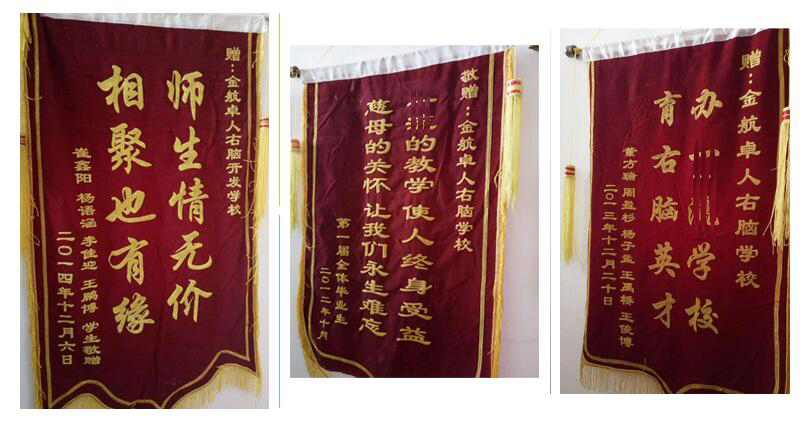 赠：金航卓人右脑开发学校
师生情无价
相聚也有缘
崔鑫阳 杨语涵 李佳迎 王鹏博 学生敬赠
二〇一四年十二月六日
敬赠：金航卓人右脑学校
的教学 使人终身受益
慈母的关怀 让我们永生难忘
第一届全体毕业生
二〇一二年十月
赠：金航卓人右脑学校
办 学校
育右脑英才
董方瑞 周盈杉 杨子孟 王禹桥 王俊博
二〇一三年十二月二十日